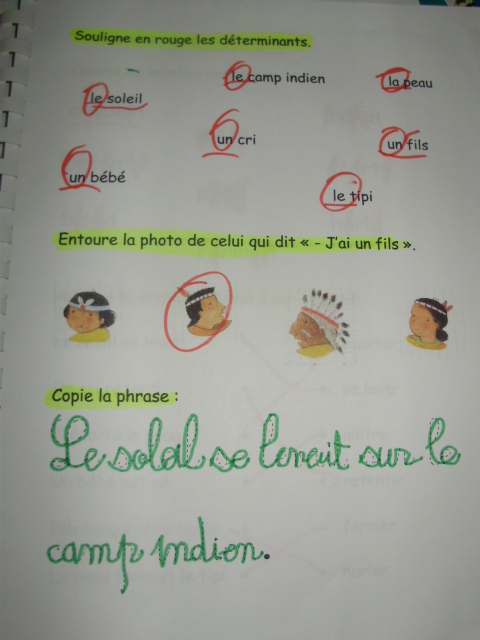 Souligne en rouge les déterminants.
le camp indien
la peau
le soleil
un cri
un fils
un bébé
le tipi
Entoure la photo de celui qui dit « - J'ai un fils ».
Copie la phrase :
Le soleil se levait sur le
camp indien.